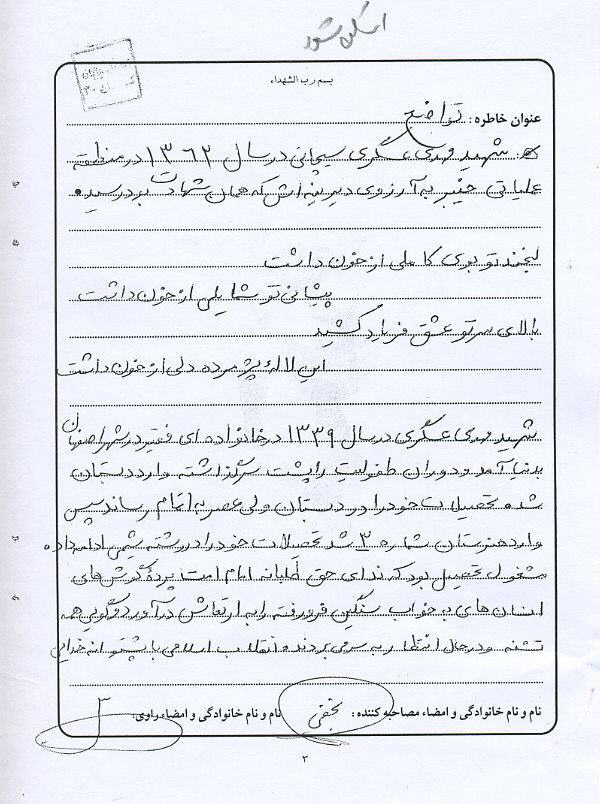 اسکن شود
بسم رب الشهداء
عنوان خاطره: تواضع
شهید مهدی عسگری سیچانی در سال ۱۳۶۲ در منطقه
عملیاتی خیبر به آرزوی دیرینه‌اش که همان شهادت بود رسید.
لبخند تو بوی کاملی از خون داشت
پیشانی تو شمایلی از خون داشت
بالای سر تو عشق فریاد کشید
این لالهٔ پژمرده دلی از خون داشت
شهید مهدی عسگری در سال ۱۳۳۹ در خانواده ای فقیر در شهر اصفهان
بدنیا آمد و دوران طفولیت را پشت سر گذاشته وارد دبستان
شده تحصیلات خود را در دبستان ولی عصر به اتمام رساند سپس
وارد هنرستان شماره ۳ شد تحصیلات خود را در رشته شیمی ادامه داد
مشغول تحصیل بود که ندای حق طلبانه امام امت پرده گوش های
انسان های به خواب سنگین فرو رفته را به ارتعاش در آورد گویی همه
تشنه و در حال انتظار به سر می بردند و انقلاب اسلامی با پشتوانه خدایی
نام و نام خانوادگی و امضاء مصاحبه کننده: نجفی نام و نام خانوادگی و امضاء راوی:
۲